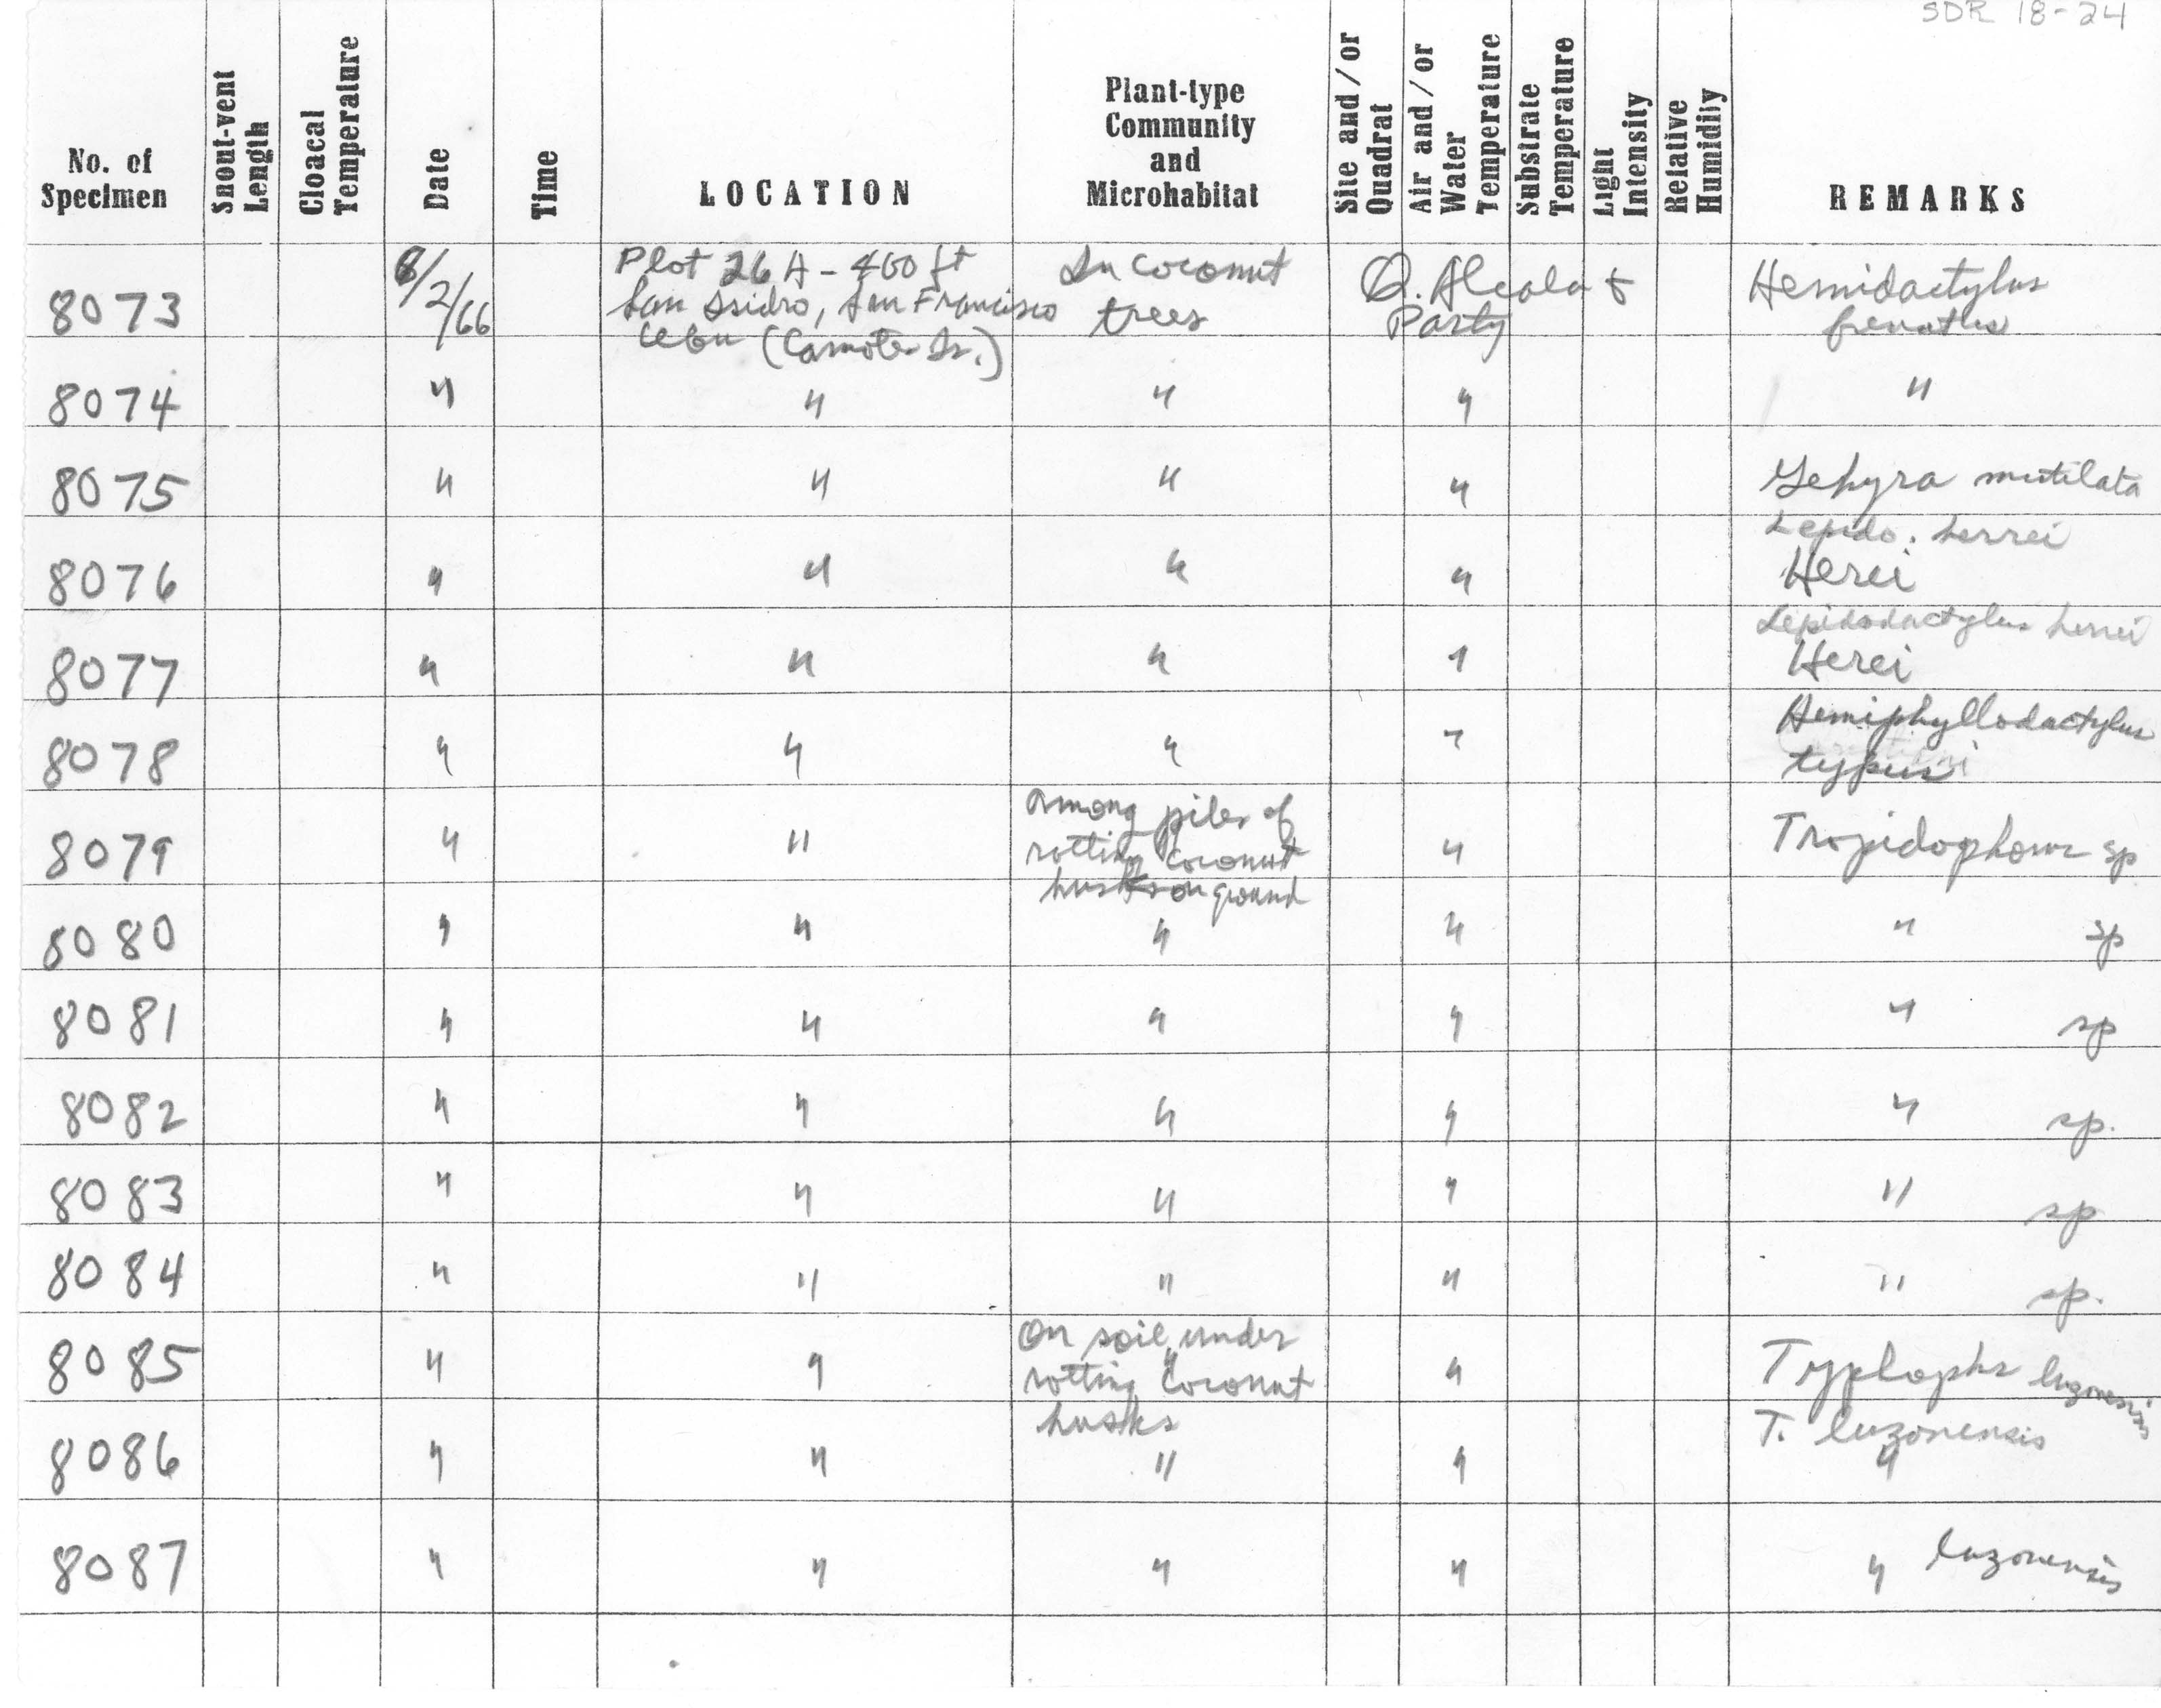 SDR 18-24
No. of Specimen Snout-vent Length Cloacal Temperature Date Time LOCATION Plant-type Community and Microhabitat Site and/or Quadrat Air and/or Water Temperature Substrate Temperature Light Intensity Relative Humidity REMARKS
8073 8/2/66 Plot 26A - 400 ft In coconut Q. Alcala & Hemidactylus
San Isidro, San Francisco trees Party frenatus
Cebu (Camotes Is.)
8074 " " " " "
8075 " " " " Gehyra mutilata
Lepido. herrei
8076 " " " " Herei
Lepidodactylus herrei
8077 " " " " Herei
8078 " " " " Hemiphyllodactylus
typus
8079 " " among piles of " Tropidophorus sp
rotting coconut
husks on ground
8080 " " " " " sp
8081 " " " " " sp
8082 " " " " " sp.
8083 " " " " " sp
8084 " " " " " sp.
8085 " " On soil, under " Typlophs luzonensis
rotting coconut
husks T. luzonensis
8086 " " " " "
8087 " " " " " luzonensis